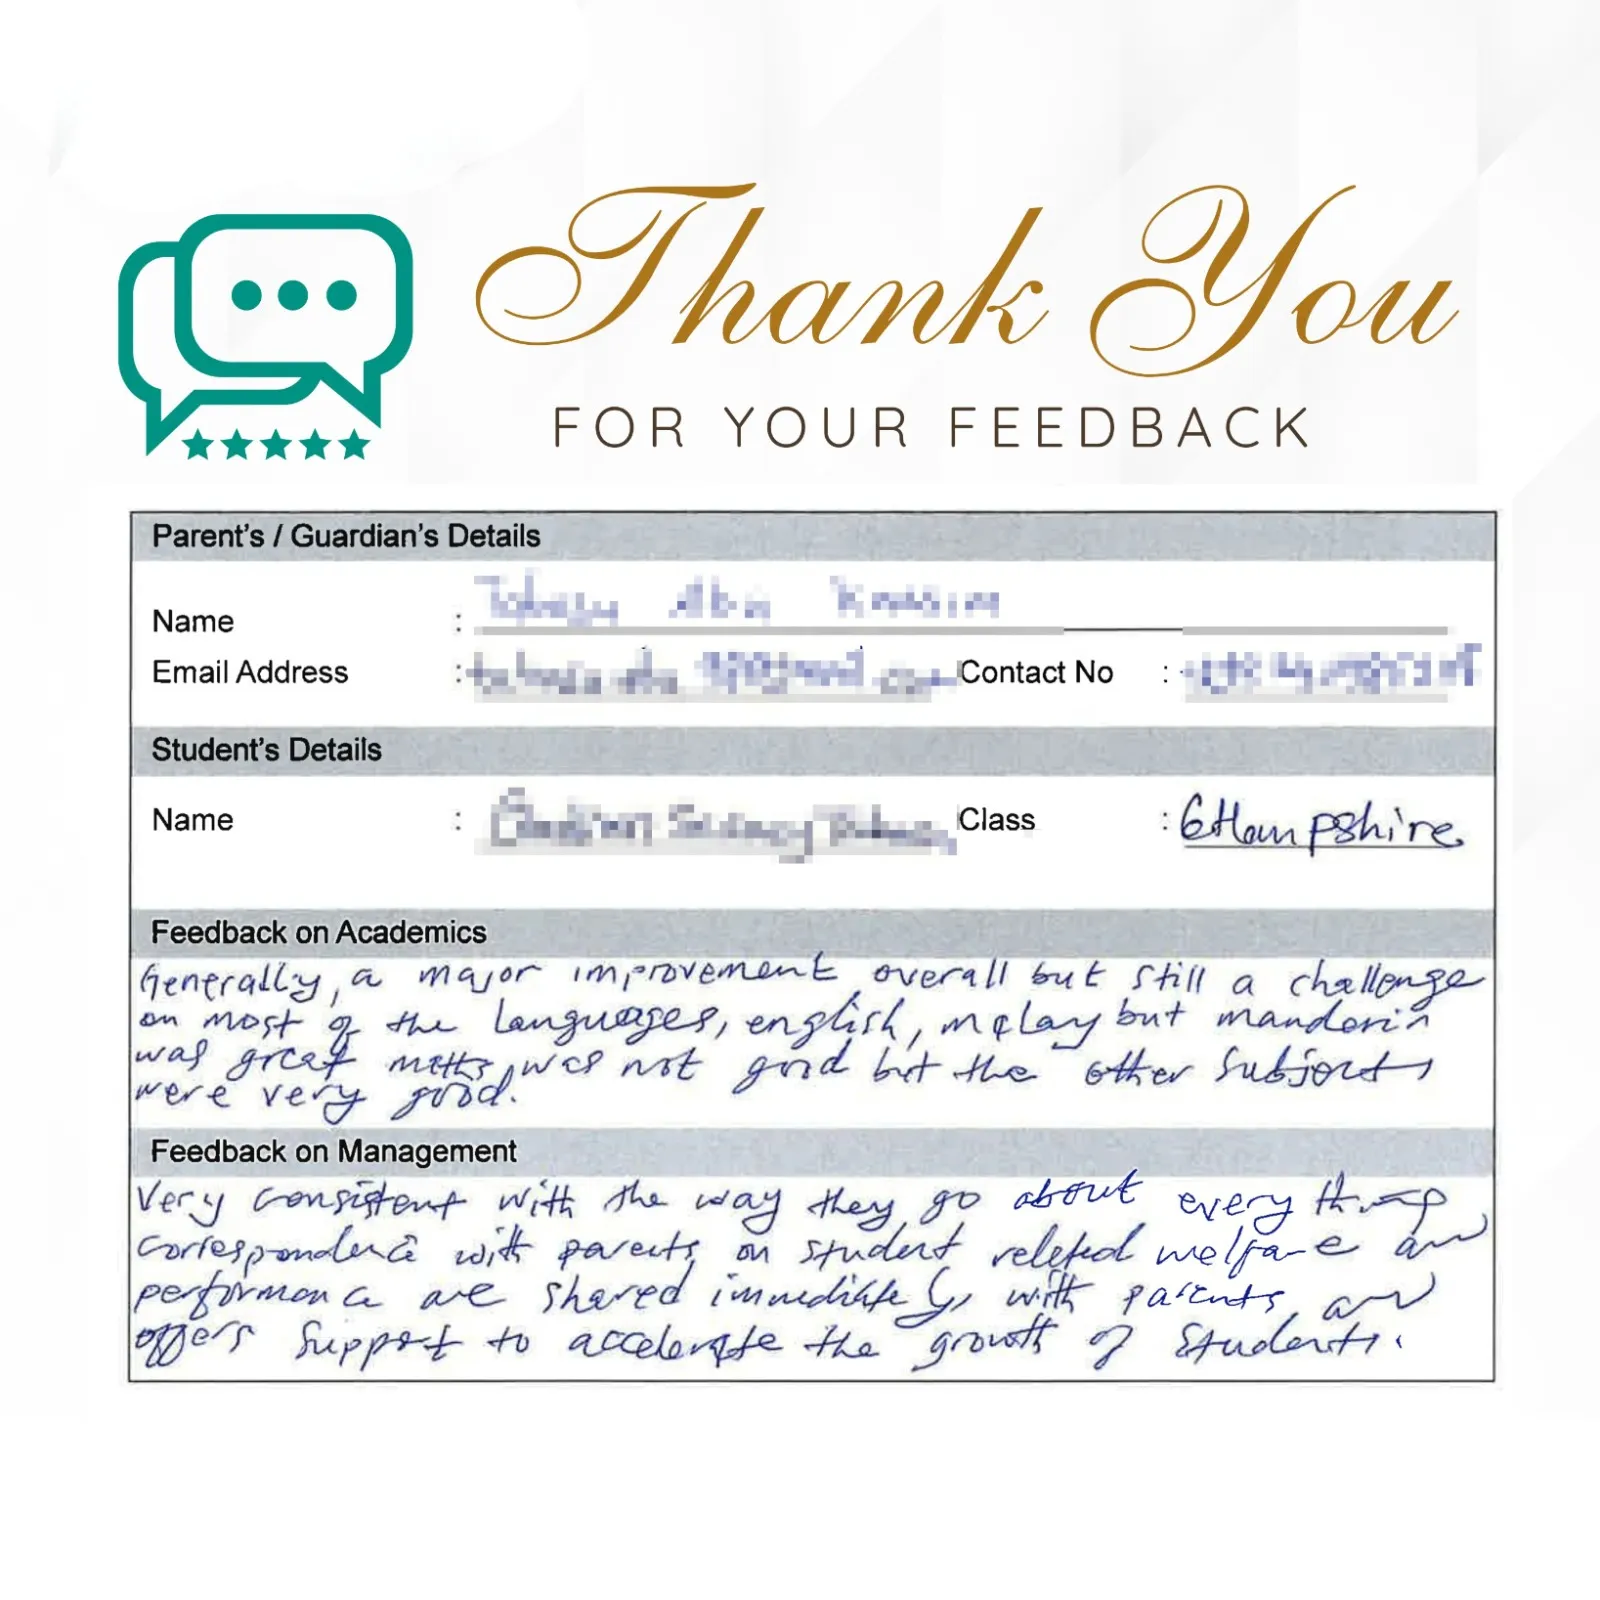 Thank You
FOR YOUR FEEDBACK
Parent's / Guardian's Details
Name :
Email Address : Contact No :
Student's Details
Name : Class : 6Hampshire
Feedback on Academics
Generally, a major improvement overall but still a challenge
on most of the languages, english, melay but mandarin
was great maths was not good but the other subjects
were very good.
Feedback on Management
Very consistent with the way they go about every thing
correspondence with parents on student related welfare and
performance are shared immediately, with parents, and
offers support to accelerate the growth of students.